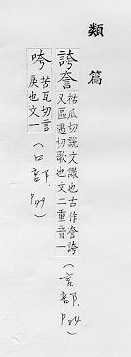 類篇
誇夸 枯瓜切說文譀也古作夸誇
又區遇切歌也文二重音一
(言部. P.84)
咵 苦瓦切言
戾也文一
(口部. P.49)